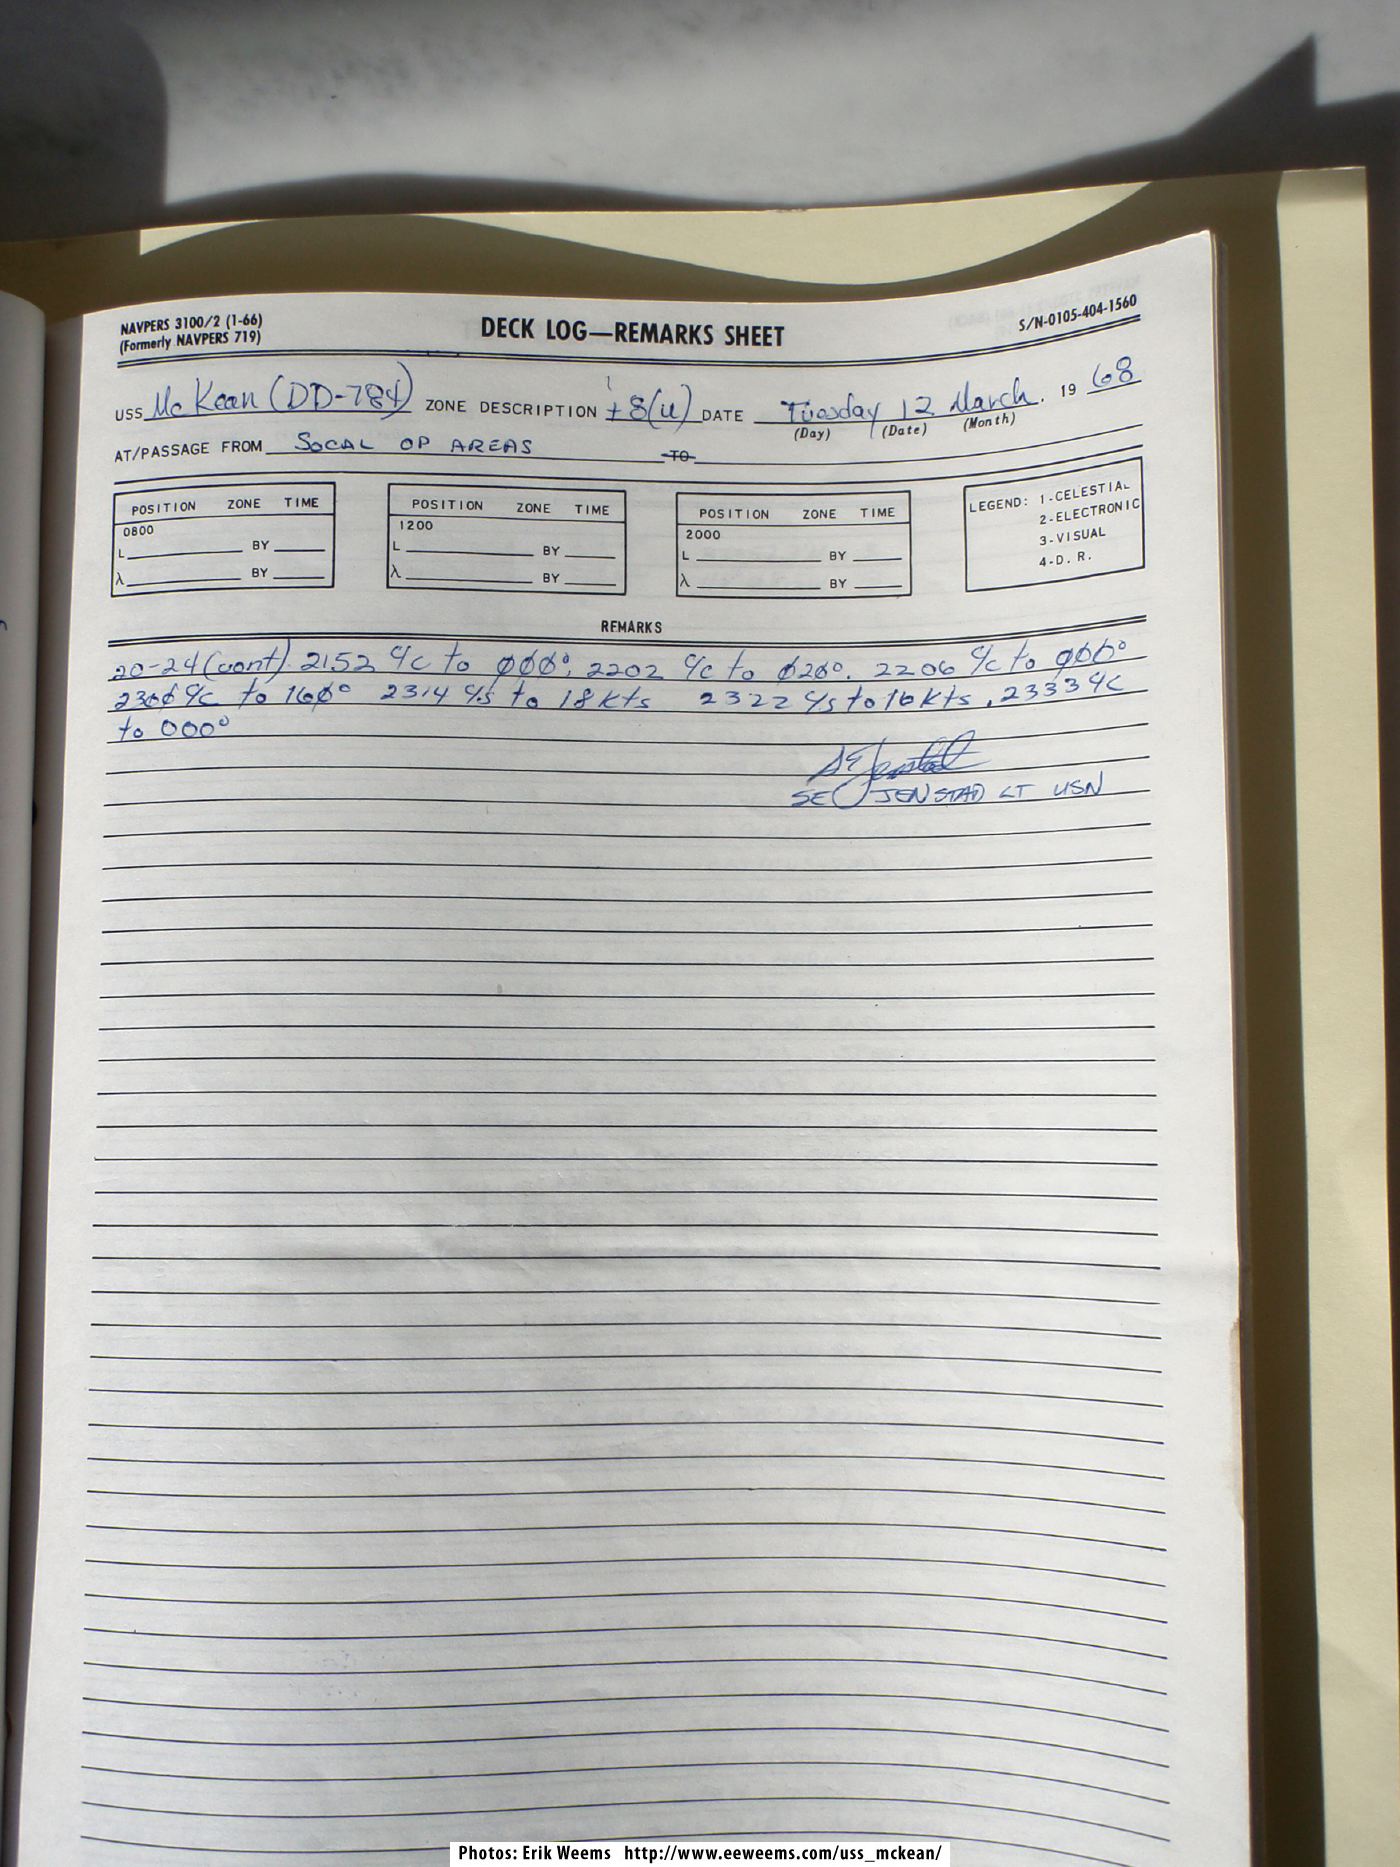 NAVPERS 3100/2 (1-66)
(Formerly NAVPERS 719)
DECK LOG—REMARKS SHEET
S/N-0105-404-1560
USS McKean (DD-784) ZONE DESCRIPTION +8(U) DATE Tuesday 12 March. 1968
(Day) (Date) (Month)
AT/PASSAGE FROM SOCAL OP AREAS TO
POSITION ZONE TIME
0800
L BY
λ BY
POSITION ZONE TIME
1200
L BY
λ BY
POSITION ZONE TIME
2000
L BY
λ BY
LEGEND: 1-CELESTIAL
2-ELECTRONIC
3-VISUAL
4-D. R.
REMARKS
20-24 (cont). 2152 c/c to 000°, 2202 c/c to 020°. 2206 c/c to 000°
2300 c/c to 160° 2314 c/s to 18 kts 2322 c/s to 16 kts, 2333 c/c
to 000°
SE JENSTAD LT USN
Photos: Erik Weems http://www.eeweems.com/uss_mckean/